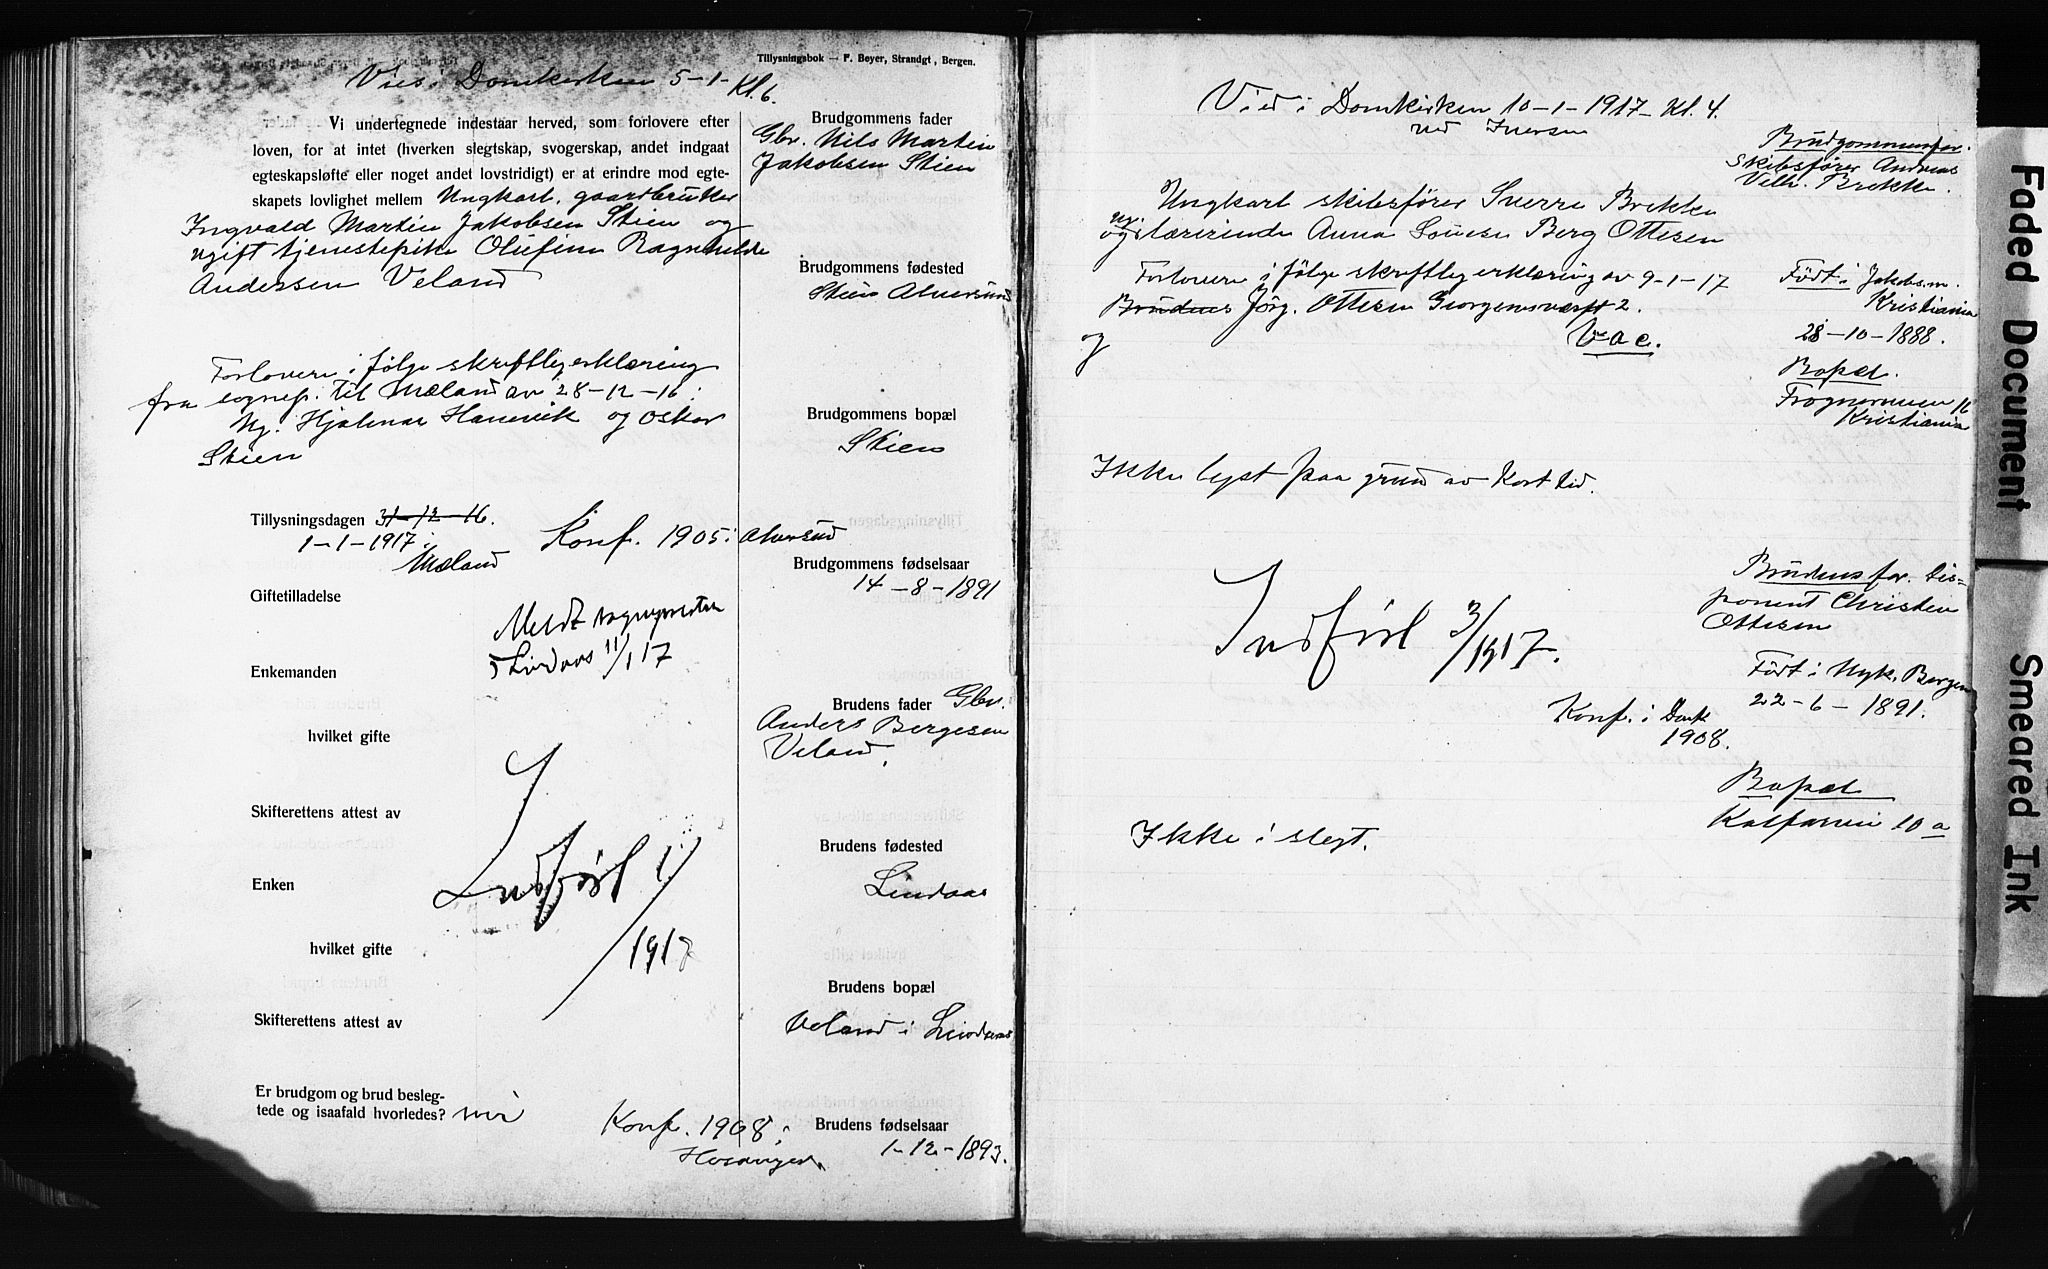 Tillysningsbok — F. Beyer, Strandgt, Bergen.
Vies i Domkirken 5-1- Kl. 6.
Vi undertegnede indestaar herved, som forlovere efter
loven, for at intet (hverken slegtskap, svogerskap, andet indgaat
egteskapsløfte eller noget andet lovstridigt) er at erindre mod egte-
skapets lovlighet mellem Ungkarl, gaardbruker
Ingvald Martin Jakobsen Stien og
ugift tjenestepike Olufine Ragnhilde
Andersen Veland
Forlovere i følge skriftlig erklæring
fra sognep. til Mæland av 28-12-16:
Ug. Hjalmar Hanevik og Oskar
Stien
Tillysningsdagen 31-12-16.
1-1-1917 i
Mæland
Konf. 1905 i Alversund
Giftetilladelse
Meldt sognepresten
i Lindaas 11/1 17
Enkemanden
hvilket gifte
Skifterettens attest av
Indført 1/
1917
Enken
hvilket gifte
Skifterettens attest av
Er brudgom og brud besleg-
tede og isaafald hvorledes? nei
Konf. 1908 i
Hosanger
Brudgommens fader
Gbr. Nils Martin
Jakobsen Stien
Brudgommens fødested
Stien Alversund
Brudgommens bopæl
Stien
Brudgommens fødselsaar
14-8-1891
Brudens fader Gbr.
Anders Bergesen
Veland.
Brudens fødested
Lindaas
Brudens bopæl
Veland i Lindaas
Brudens fødselsaar
1-12-1893.
Vied i Domkirken 10-1-1917- Kl. 4.
ved Iversen
Ungkarl skibsfører Sverre Brekke
og ug. lærerinde Anna Louise Berg Ottesen
Forlovere i følge skriftlig erklæring av 9-1-17
Brudens Jørg. Ottesen Georgernesværft 2.
og
Vac.
Ikke lyst paa grund av kort tid.
Indført 3/1917.
Konf. i Domk
1908.
Ikke i slegt.
Brudgommens far.
Skibsfører Andreas
Vilh. Brekke.
Født i Jakobs m.
Kristiania
28-10-1888.
Bopæl.
Frognerveien 16
Kristiania
Brudens far. Dis-
ponent Christen
Ottesen
Født i Nyk. Bergen
22-6-1891.
Bopæl
Kalfarvei 10 a
Faded Document
Smeared Ink